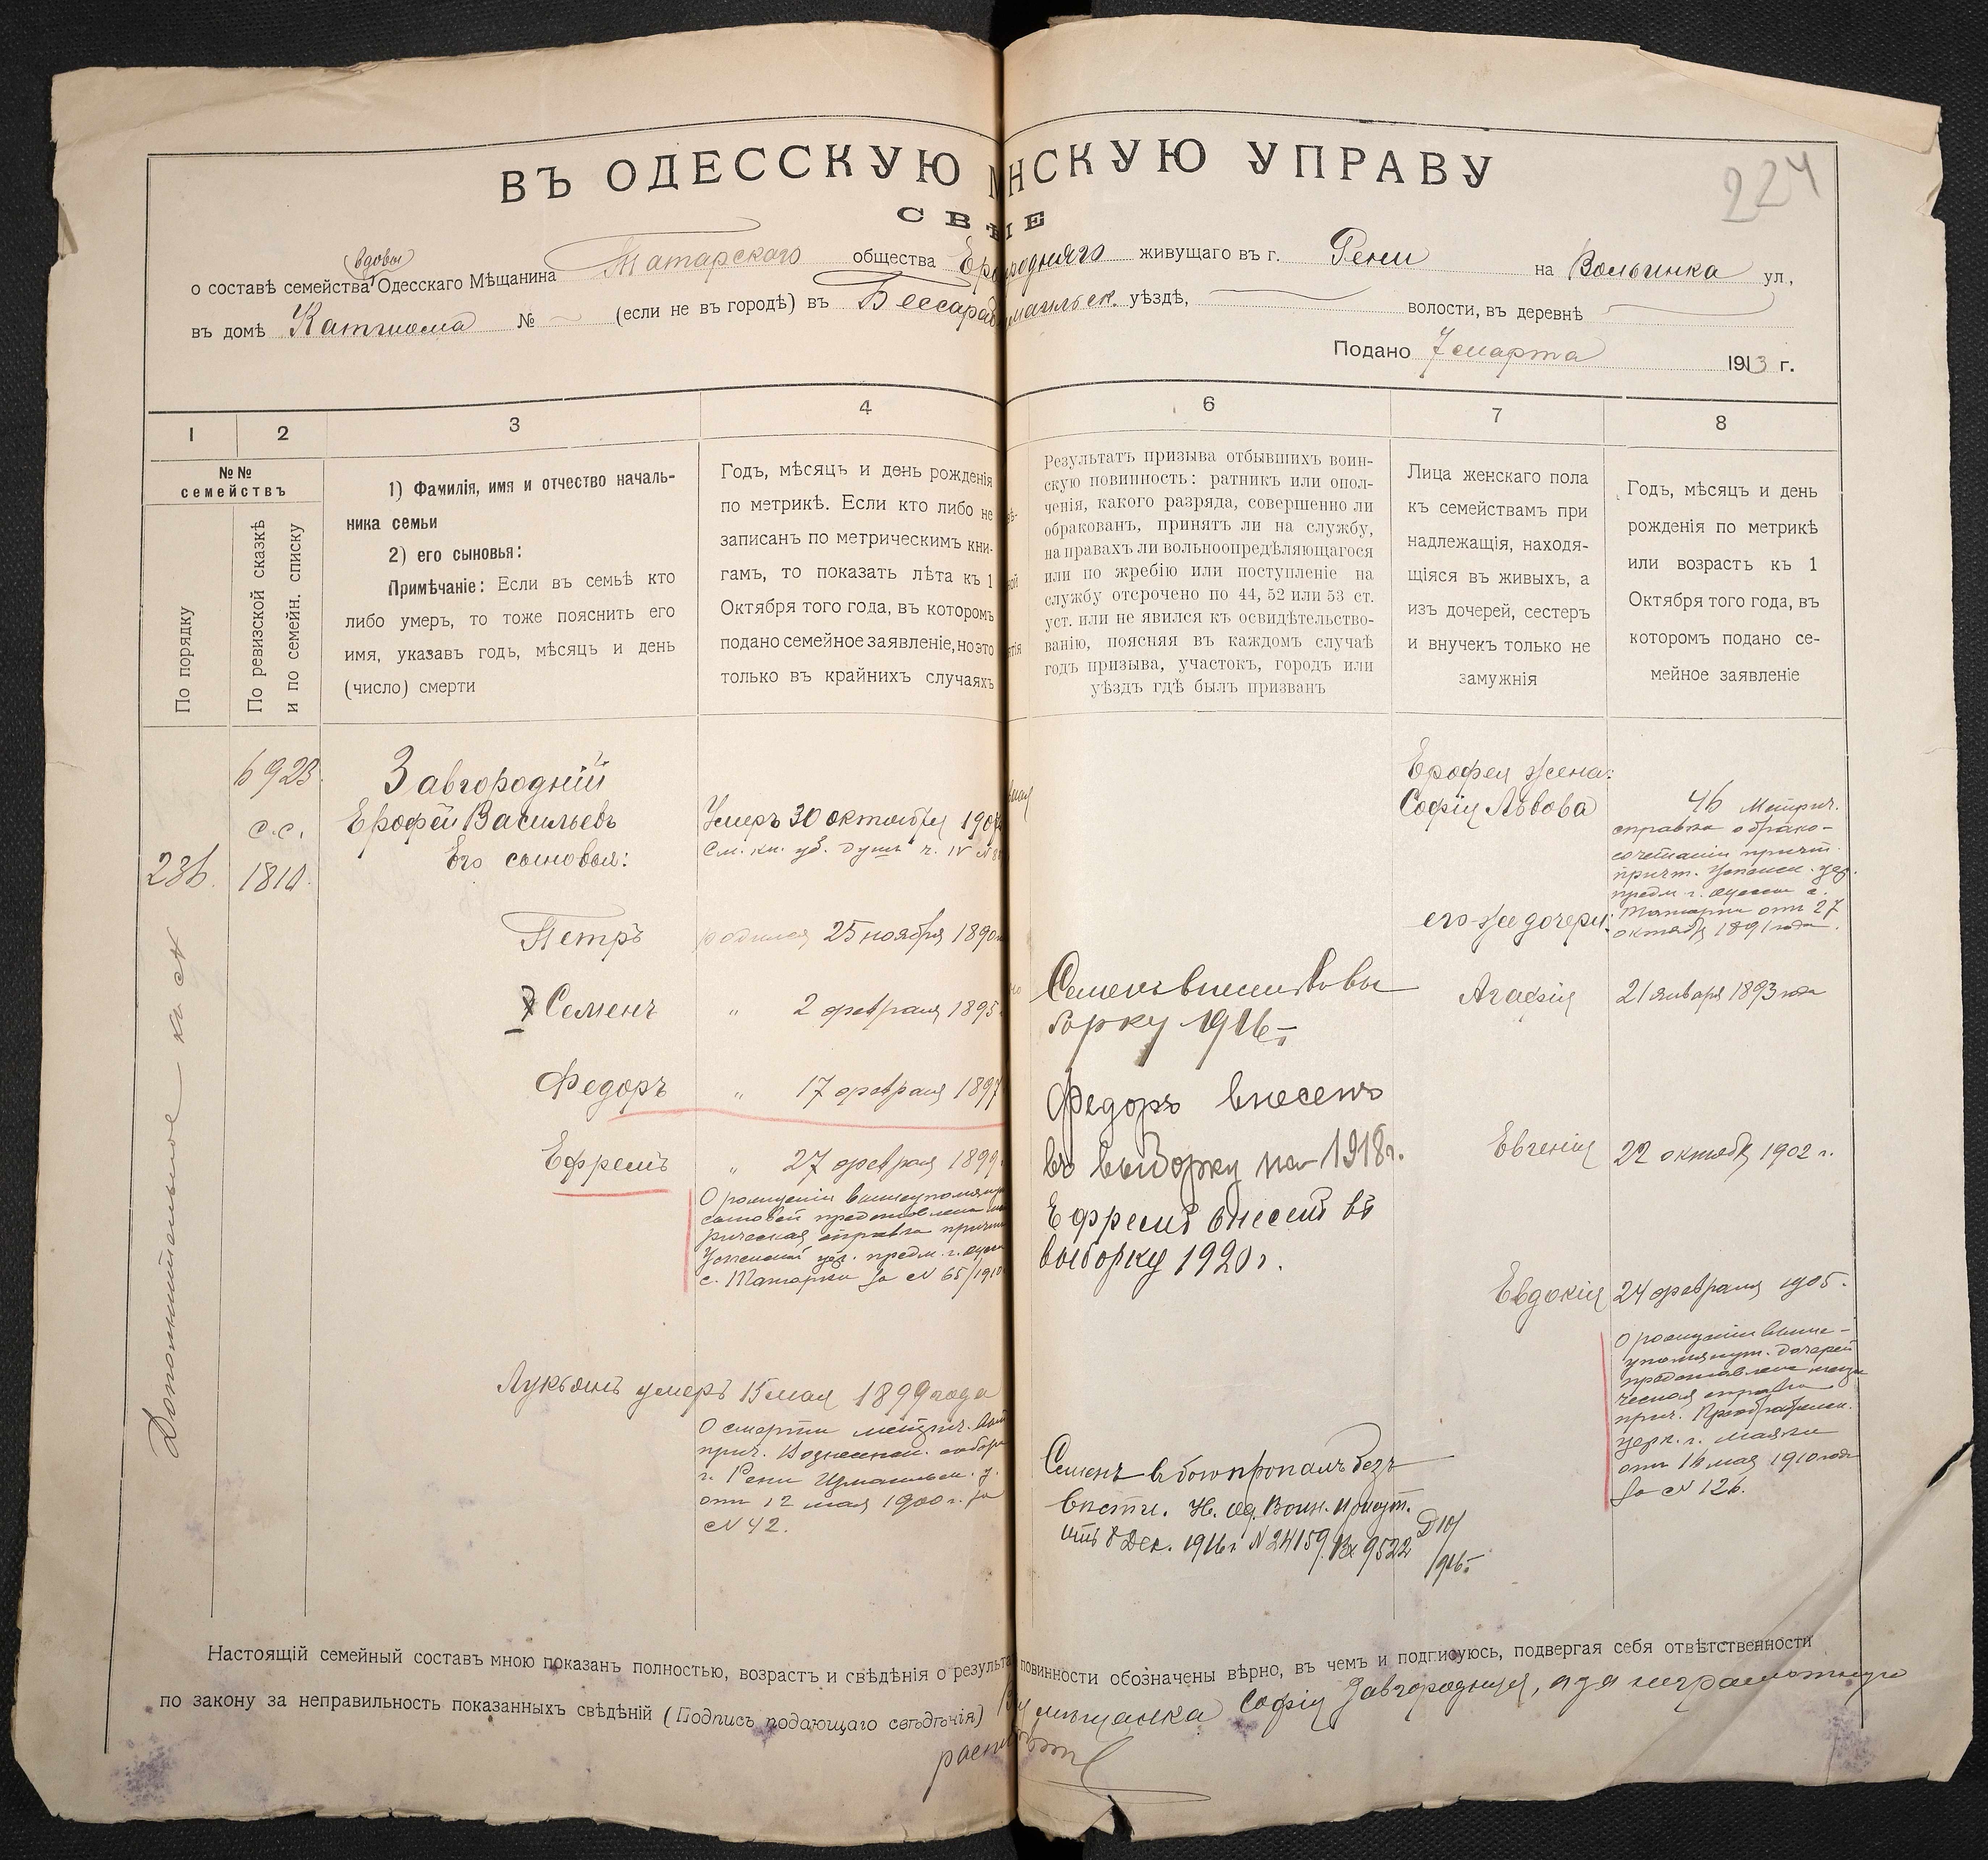 224
ВЪ ОДЕССКУЮ НСКУЮ УПРАВУ
вдовы
о составѣ семейства Одесскаго Мѣщанина Татарскаго общества живущаго въ г. Рени на Волынка ул.,
въ домѣ № (если не въ городѣ) въ уѣздѣ, волости, въ деревнѣ
Подано 7 марта 1913 г.
1 2 3 4 6 7 8
№№
семействъ
По порядку
По ревизской сказкѣ
и по семейн. списку
1) Фамилія, имя и отчество началь-
ника семьи
2) его сыновья:
Примѣчаніе: Если въ семьѣ кто
либо умеръ, то тоже пояснить его
имя, указавъ годъ, мѣсяцъ и день
(число) смерти
Годъ, мѣсяцъ и день рожденія
по метрикѣ. Если кто либо не
записанъ по метрическимъ кни-
гамъ, то показать лѣта къ 1
Октября того года, въ которомъ
подано семейное заявленіе, но это
только въ крайнихъ случаяхъ
Результатъ призыва отбывшихъ воин-
скую повинность: ратникъ или опол-
ченія, какого разряда, совершенно ли
обракованъ, принятъ ли на службу,
на правахъ ли вольноопредѣляющагося
или по жребію или поступленіе на
службу отсрочено по 44, 52 или 53 ст.
уст. или не явился къ освидѣтельство-
ванію, поясняя въ каждомъ случаѣ
годъ призыва, участокъ, городъ или
уѣздъ гдѣ былъ призванъ
Лица женскаго пола
къ семействамъ при
надлежащія, находя-
щіяся въ живыхъ, а
изъ дочерей, сестеръ
и внучекъ только не
замужнія
Годъ, мѣсяцъ и день
рожденія по метрикѣ
или возрастъ къ 1
Октября того года, въ
которомъ подано се-
мейное заявленіе
236.
Дополнительное
6923.
с.с.
1810.
Завгородній
Ерофей Васильевъ
Его сыновья:
Умеръ 30 октября
Петръ родился 25 ноября 1890
Семенъ " 2 февраля 1895
Федоръ " 17 февраля 1897
Ефремъ " 27 февраля 1899
О рожденіи
сыновей представлена
справка
с. Татарки за № 65/1910
Лукьянъ умеръ 15 мая 1899 года
О смерти
прич. Вознесенск. собора
г. Рени Измаильск. у.
отъ 12 мая 1900 г. за
№ 42.
Семенъ внесенъ въ вы
борку 1916 г.
Федоръ внесенъ
въ выборку на 1918 г.
Ефремъ внесенъ въ
выборку 1920 г.
Семенъ въ бою пропалъ безъ
вѣсти. Н. Од. Воин. Присут.
отъ 8 Дек. 1916 г. № 24159 Вх 9522
1916 г.
Ерофея жена:
Софія Львова
его же дочери:
Агафія
Евгенія
Евдокія
46 Метрич.
справка о брако-
сочетаніи
предм. г. Одессы с.
Татарки отъ 27
октября 1891 года.
21 января 1893 года
22 октября 1902 г.
24 февраля 1905.
О рожденіи выше-
упомянут. дочерей
представлена
справка
прич. Преображен.
церк. г. Маяки
отъ 16 мая 1910 года
за № 126.
Настоящій семейный составъ мною показанъ полностью, возрастъ и свѣдѣнія о результа повинности обозначены вѣрно, въ чемъ и подписуюсь, подвергая себя отвѣтственности
по закону за неправильность показанныхъ свѣдѣній (Подпись подающаго свѣдѣнія) мѣщанка Софія Завгородняя, а за неграмотную